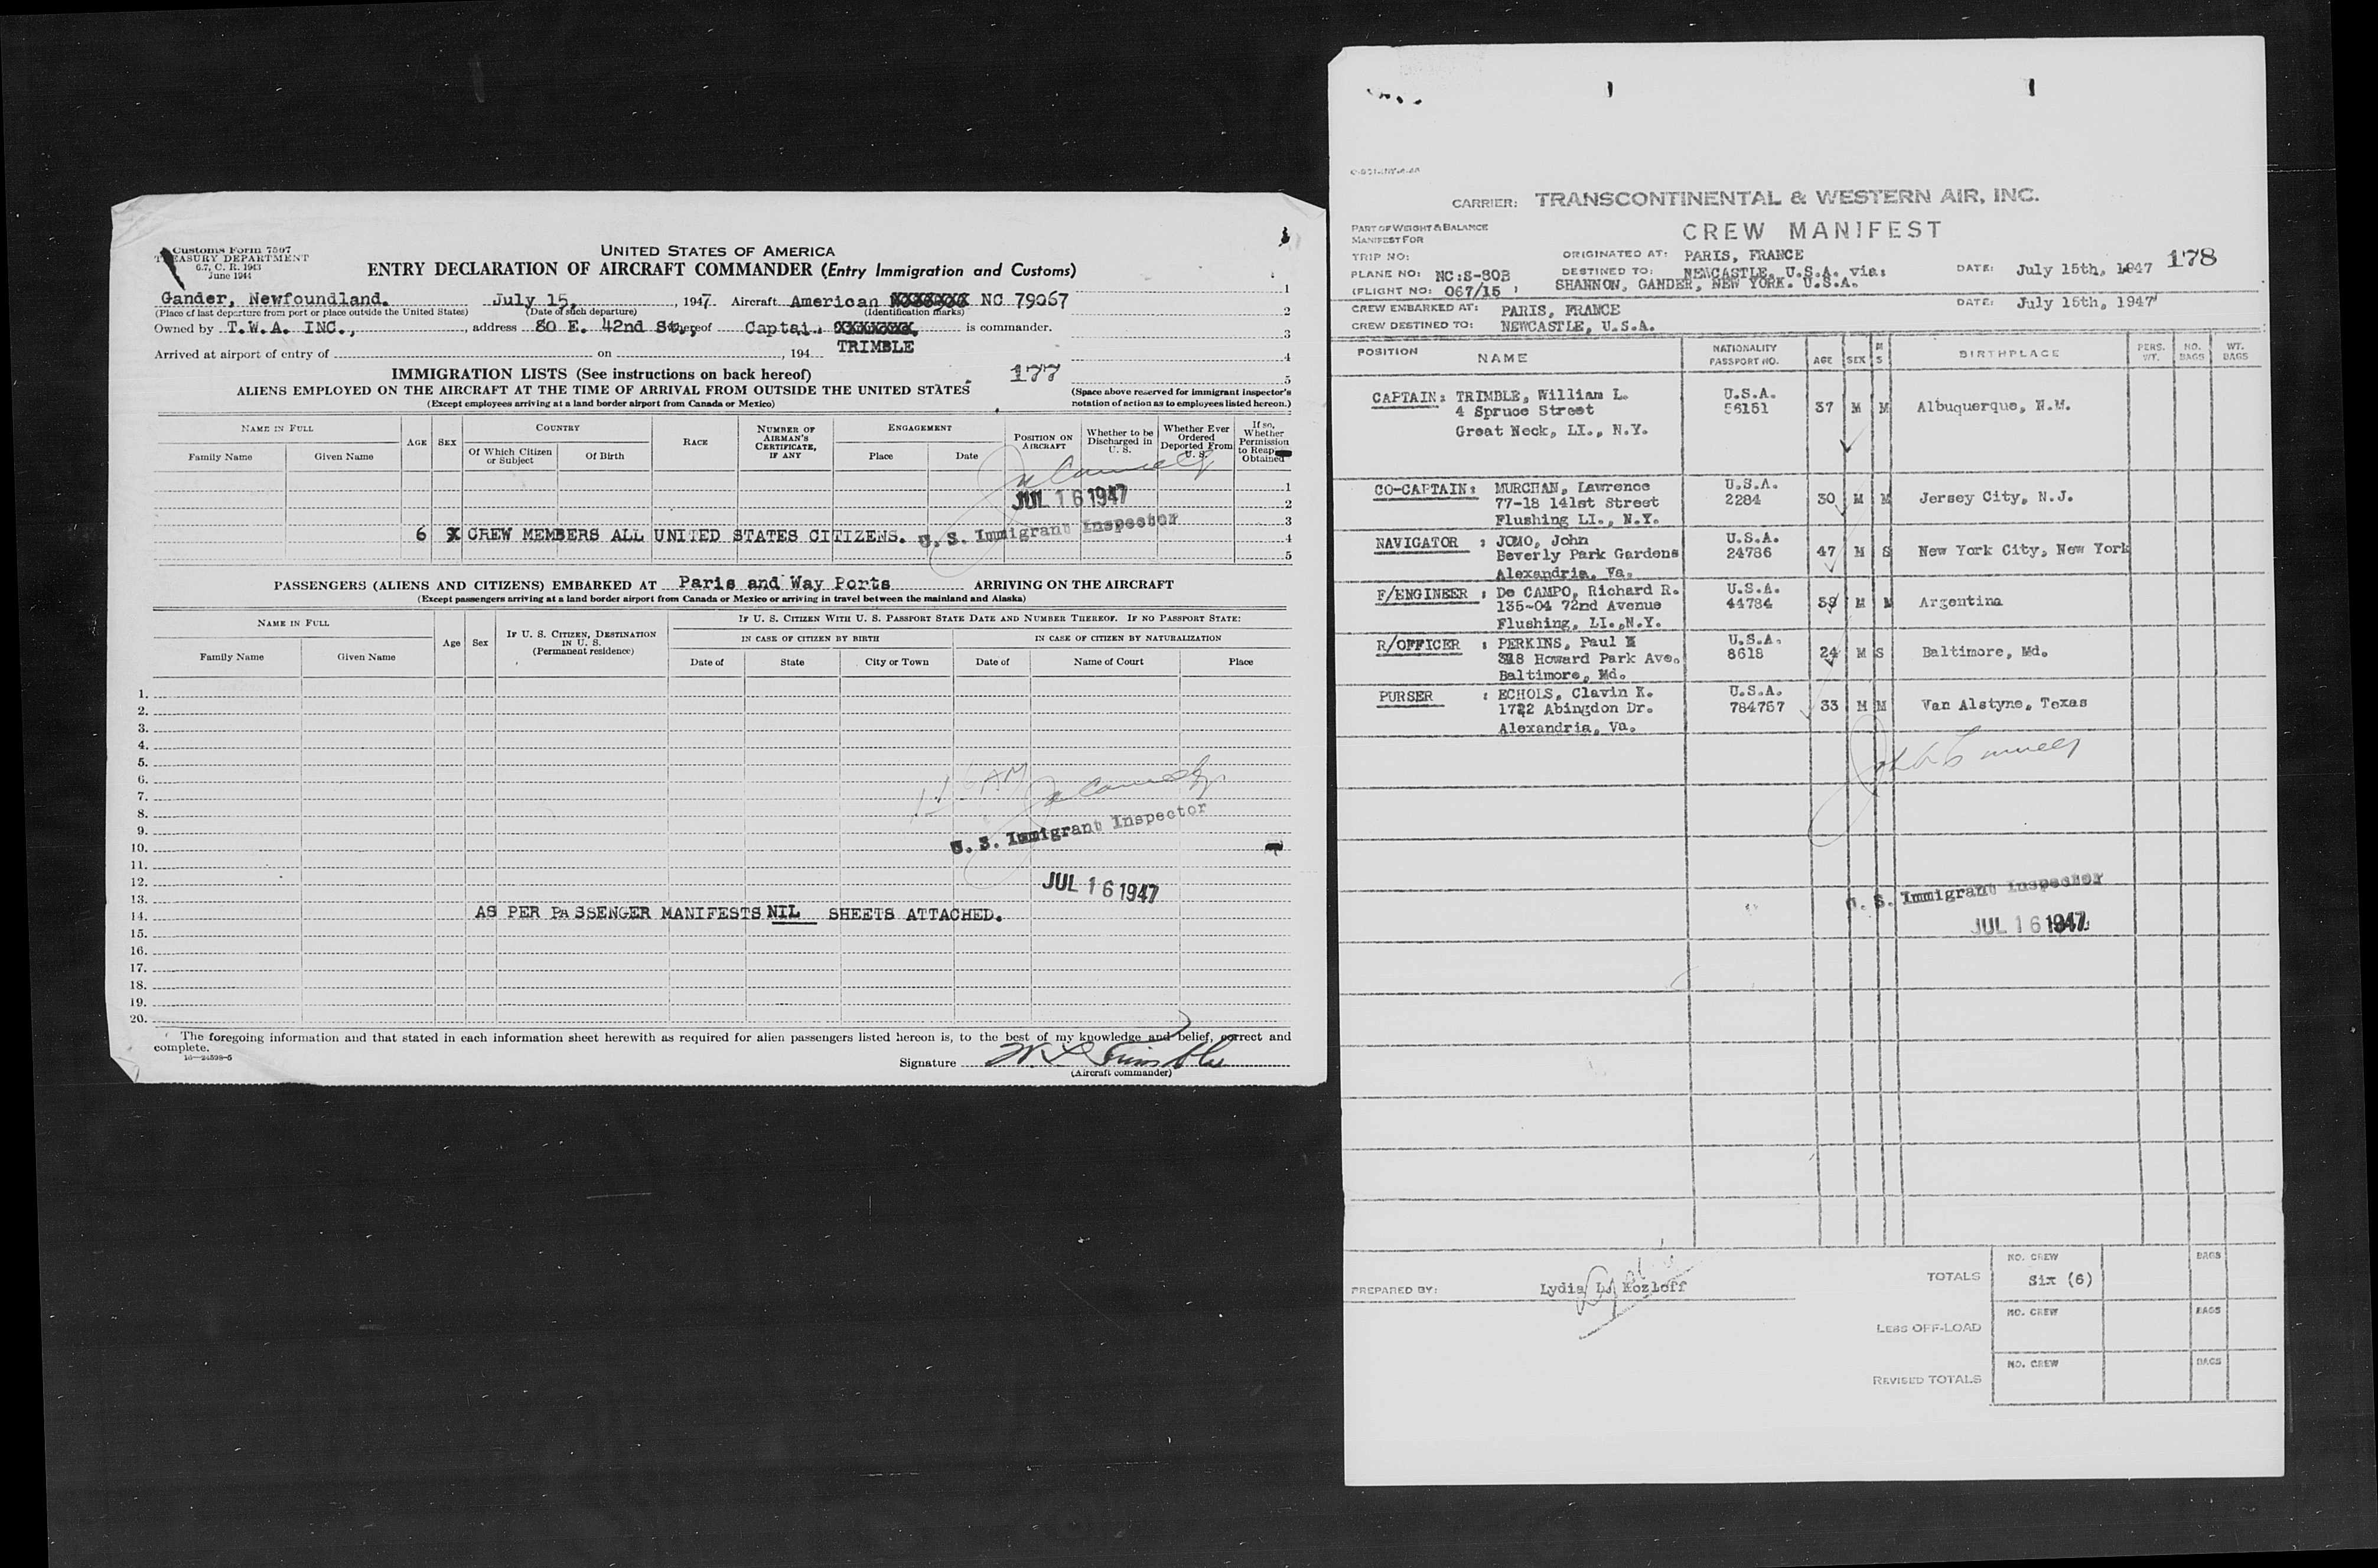 Customs Form 7507
TREASURY DEPARTMENT
6.7, C. R. 1943
June 1944
UNITED STATES OF AMERICA
ENTRY DECLARATION OF AIRCRAFT COMMANDER (Entry Immigration and Customs)
Gander, Newfoundland. July 15, , 1947. Aircraft American NC 79067
(Place of last departure from port or place outside the United States) (Date of such departure) (Identification marks)
Owned by T.W.A. INC., , address 80 E. 42nd St., thereof Captai. XXXXXXX, is commander.
TRIMBLE
Arrived at airport of entry of on , 194
1
2
3
4
5
IMMIGRATION LISTS (See instructions on back hereof) 177
ALIENS EMPLOYED ON THE AIRCRAFT AT THE TIME OF ARRIVAL FROM OUTSIDE THE UNITED STATES
(Except employees arriving at a land border airport from Canada or Mexico)
(Space above reserved for immigrant inspector's
notation of action as to employees listed hereon.)
NAME IN FULL
Family Name Given Name
AGE SEX
COUNTRY
Of Which Citizen or Subject Of Birth
RACE
NUMBER OF AIRMAN'S CERTIFICATE, IF ANY
ENGAGEMENT
Place Date
POSITION ON AIRCRAFT
Whether to be Discharged in U. S.
Whether Ever Ordered Deported From U. S.
If so, Whether Permission to Reap Obtained
1
JUL 16 1947
2
3
6 X CREW MEMBERS ALL UNITED STATES CITIZENS. U. S. Immigrant Inspector
4
5
PASSENGERS (ALIENS AND CITIZENS) EMBARKED AT Paris and Way Ports ARRIVING ON THE AIRCRAFT
(Except passengers arriving at a land border airport from Canada or Mexico or arriving in travel between the mainland and Alaska)
NAME IN FULL
Family Name Given Name
Age Sex
IF U. S. CITIZEN, DESTINATION IN U. S.
(Permanent residence)
IF U. S. CITIZEN WITH U. S. PASSPORT STATE DATE AND NUMBER THEREOF. IF NO PASSPORT STATE:
IN CASE OF CITIZEN BY BIRTH IN CASE OF CITIZEN BY NATURALIZATION
Date of State City or Town Date of Name of Court Place
1.
2.
3.
4.
5.
6.
7.
8.
9.
U. S. Immigrant Inspector
10.
11.
12.
JUL 16 1947
13.
14. AS PER PASSENGER MANIFESTS NIL SHEETS ATTACHED.
15.
16.
17.
18.
19.
20.
The foregoing information and that stated in each information sheet herewith as required for alien passengers listed hereon is, to the best of my knowledge and belief, correct and
complete.
16—24598-5
Signature W. L. Trimble
(Aircraft commander)
CARRIER: TRANSCONTINENTAL & WESTERN AIR, INC.
CREW MANIFEST
PART OF WEIGHT & BALANCE
MANIFEST FOR
TRIP NO: ORIGINATED AT: PARIS, FRANCE 178
PLANE NO: NC:S-80B DESTINED TO: NEWCASTLE, U.S.A. via: DATE: July 15th, 1947
(FLIGHT NO: 067/15 ) SHANNON, GANDER, NEW YORK. U.S.A.
CREW EMBARKED AT: PARIS, FRANCE DATE: July 15th, 1947
CREW DESTINED TO: NEWCASTLE, U.S.A.
POSITION NAME NATIONALITY PASSPORT NO. AGE SEX M S BIRTHPLACE PERS. WT. NO. BAGS WT. BAGS
CAPTAIN: TRIMBLE, William L. U.S.A.
4 Spruce Street 56151 37 M M Albuquerque, N.M.
Great Neck, LI., N.Y.
CO-CAPTAIN: MURCHAN, Lawrence U.S.A.
77-18 141st Street 2284 30 M M Jersey City, N.J.
Flushing LI., N.Y.
NAVIGATOR : JOMO, John U.S.A.
Beverly Park Gardens 24786 47 M S New York City, New York
Alexandria, Va.
F/ENGINEER : De CAMPO, Richard R. U.S.A.
135-04 72nd Avenue 44784 39 M M Argentina
Flushing, LI.,N.Y.
R/OFFICER : PERKINS, Paul U.S.A.
318 Howard Park Ave. 8618 24 M S Baltimore, Md.
Baltimore, Md.
PURSER : ECHOLS, Clavin K. U.S.A.
1722 Abingdon Dr. 784757 33 M M Van Alstyne, Texas
Alexandria, Va.
U. S. Immigrant Inspector
JUL 16 1947
PREPARED BY: Lydia L. Kozloff
TOTALS NO. CREW Six (6) BAGS
LESS OFF-LOAD NO. CREW BAGS
REVISED TOTALS NO. CREW BAGS